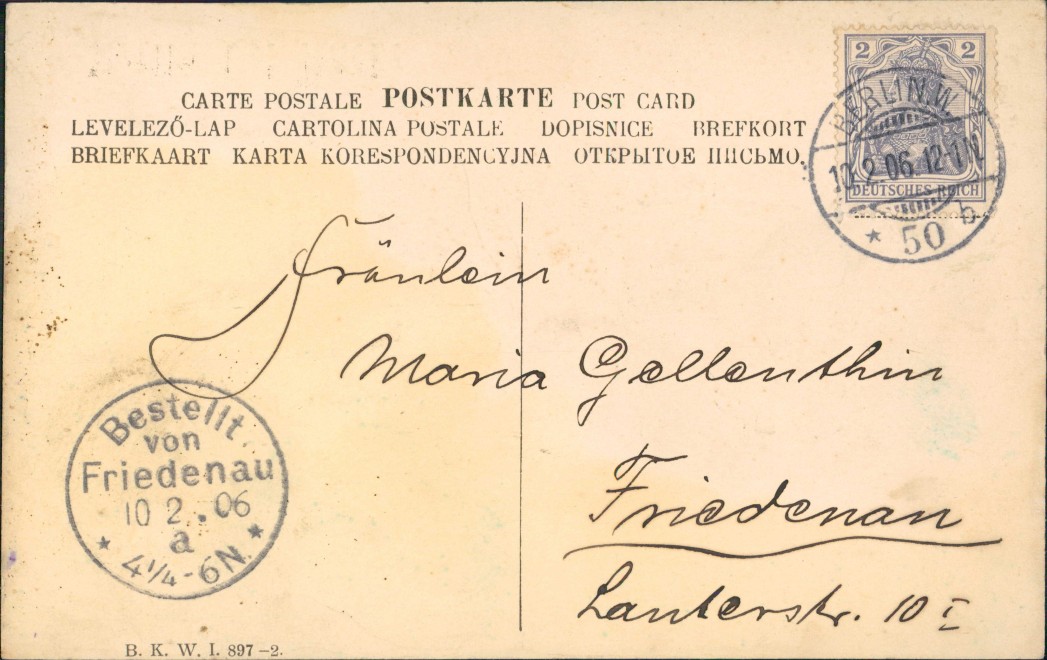 CARTE POSTALE POSTKARTE POST CARD
LEVELEZŐ-LAP CARTOLINA POSTALE DOPISNICE BREFKORT
BRIEFKAART KARTA KORESPONDENCYJNA ОТКРЫТОЕ ПИСЬМО.
2 2
DEUTSCHES REICH
BERLIN.W.
10.2.06.12-1N.
* 50 b
Fräulein
Maria Gellenthin
Friedenau
Lauterstr. 10 I
Bestellt
von
Friedenau
10 2.06
a
* 4¼-6N. *
B. K. W. I. 897-2.